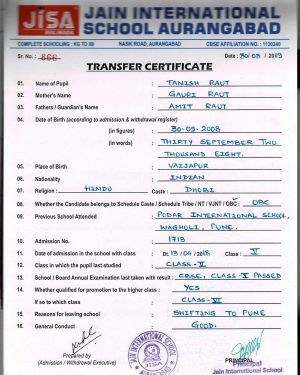 JiSA JAIN INTERNATIONAL
MALIWADA SCHOOL AURANGABAD
COMPLETE SCHOOLING : KG TO XII NASIK ROAD, AURANGABAD CBSE AFFILIATION NO. : 1130240
Sr. No. : 866 Date : 30/03/2019
TRANSFER CERTIFICATE
01. Name of Pupil : TANISH RAUT
02. Mother's Name : GAURI RAUT
03. Fathers / Guardian's Name : AMIT RAUT
04. Date of Birth (according to admission & withdrawal register)
(in figures) : 30-09-2008
(in words) : THIRTY SEPTEMBER TWO
THOUSAND EIGHT.
05. Place of Birth : VAIJAPUR
06. Nationality : INDIAN
07. Religion : HINDU Caste : DHOBI
08. Whether the Candidate belongs to Schedule Caste / Schedule Tribe / NT / VJNT / OBC : OBC
09. Previous School Attended : PODAR INTERNATIONAL SCHOOL,
WAGHOLI, PUNE.
10. Admission No. : 1718
11. Date of admission in the school with class : Dt. 13/04/2018 Class : V
12. Class in which the pupil last studied : CLASS-V
13. School / Board Annual Examination last taken with result : CBSE, CLASS V PASSED
14. Whether qualified for promotion to the higher class : YES
If so to which class : CLASS-VI
15. Reasons for leaving school : SHIFTING TO PUNE
16. General Conduct : GOOD.
Prepared by
(Admission / Withdrawal Executive)
JISA
PRINCIPAL
Principal
Jain International School